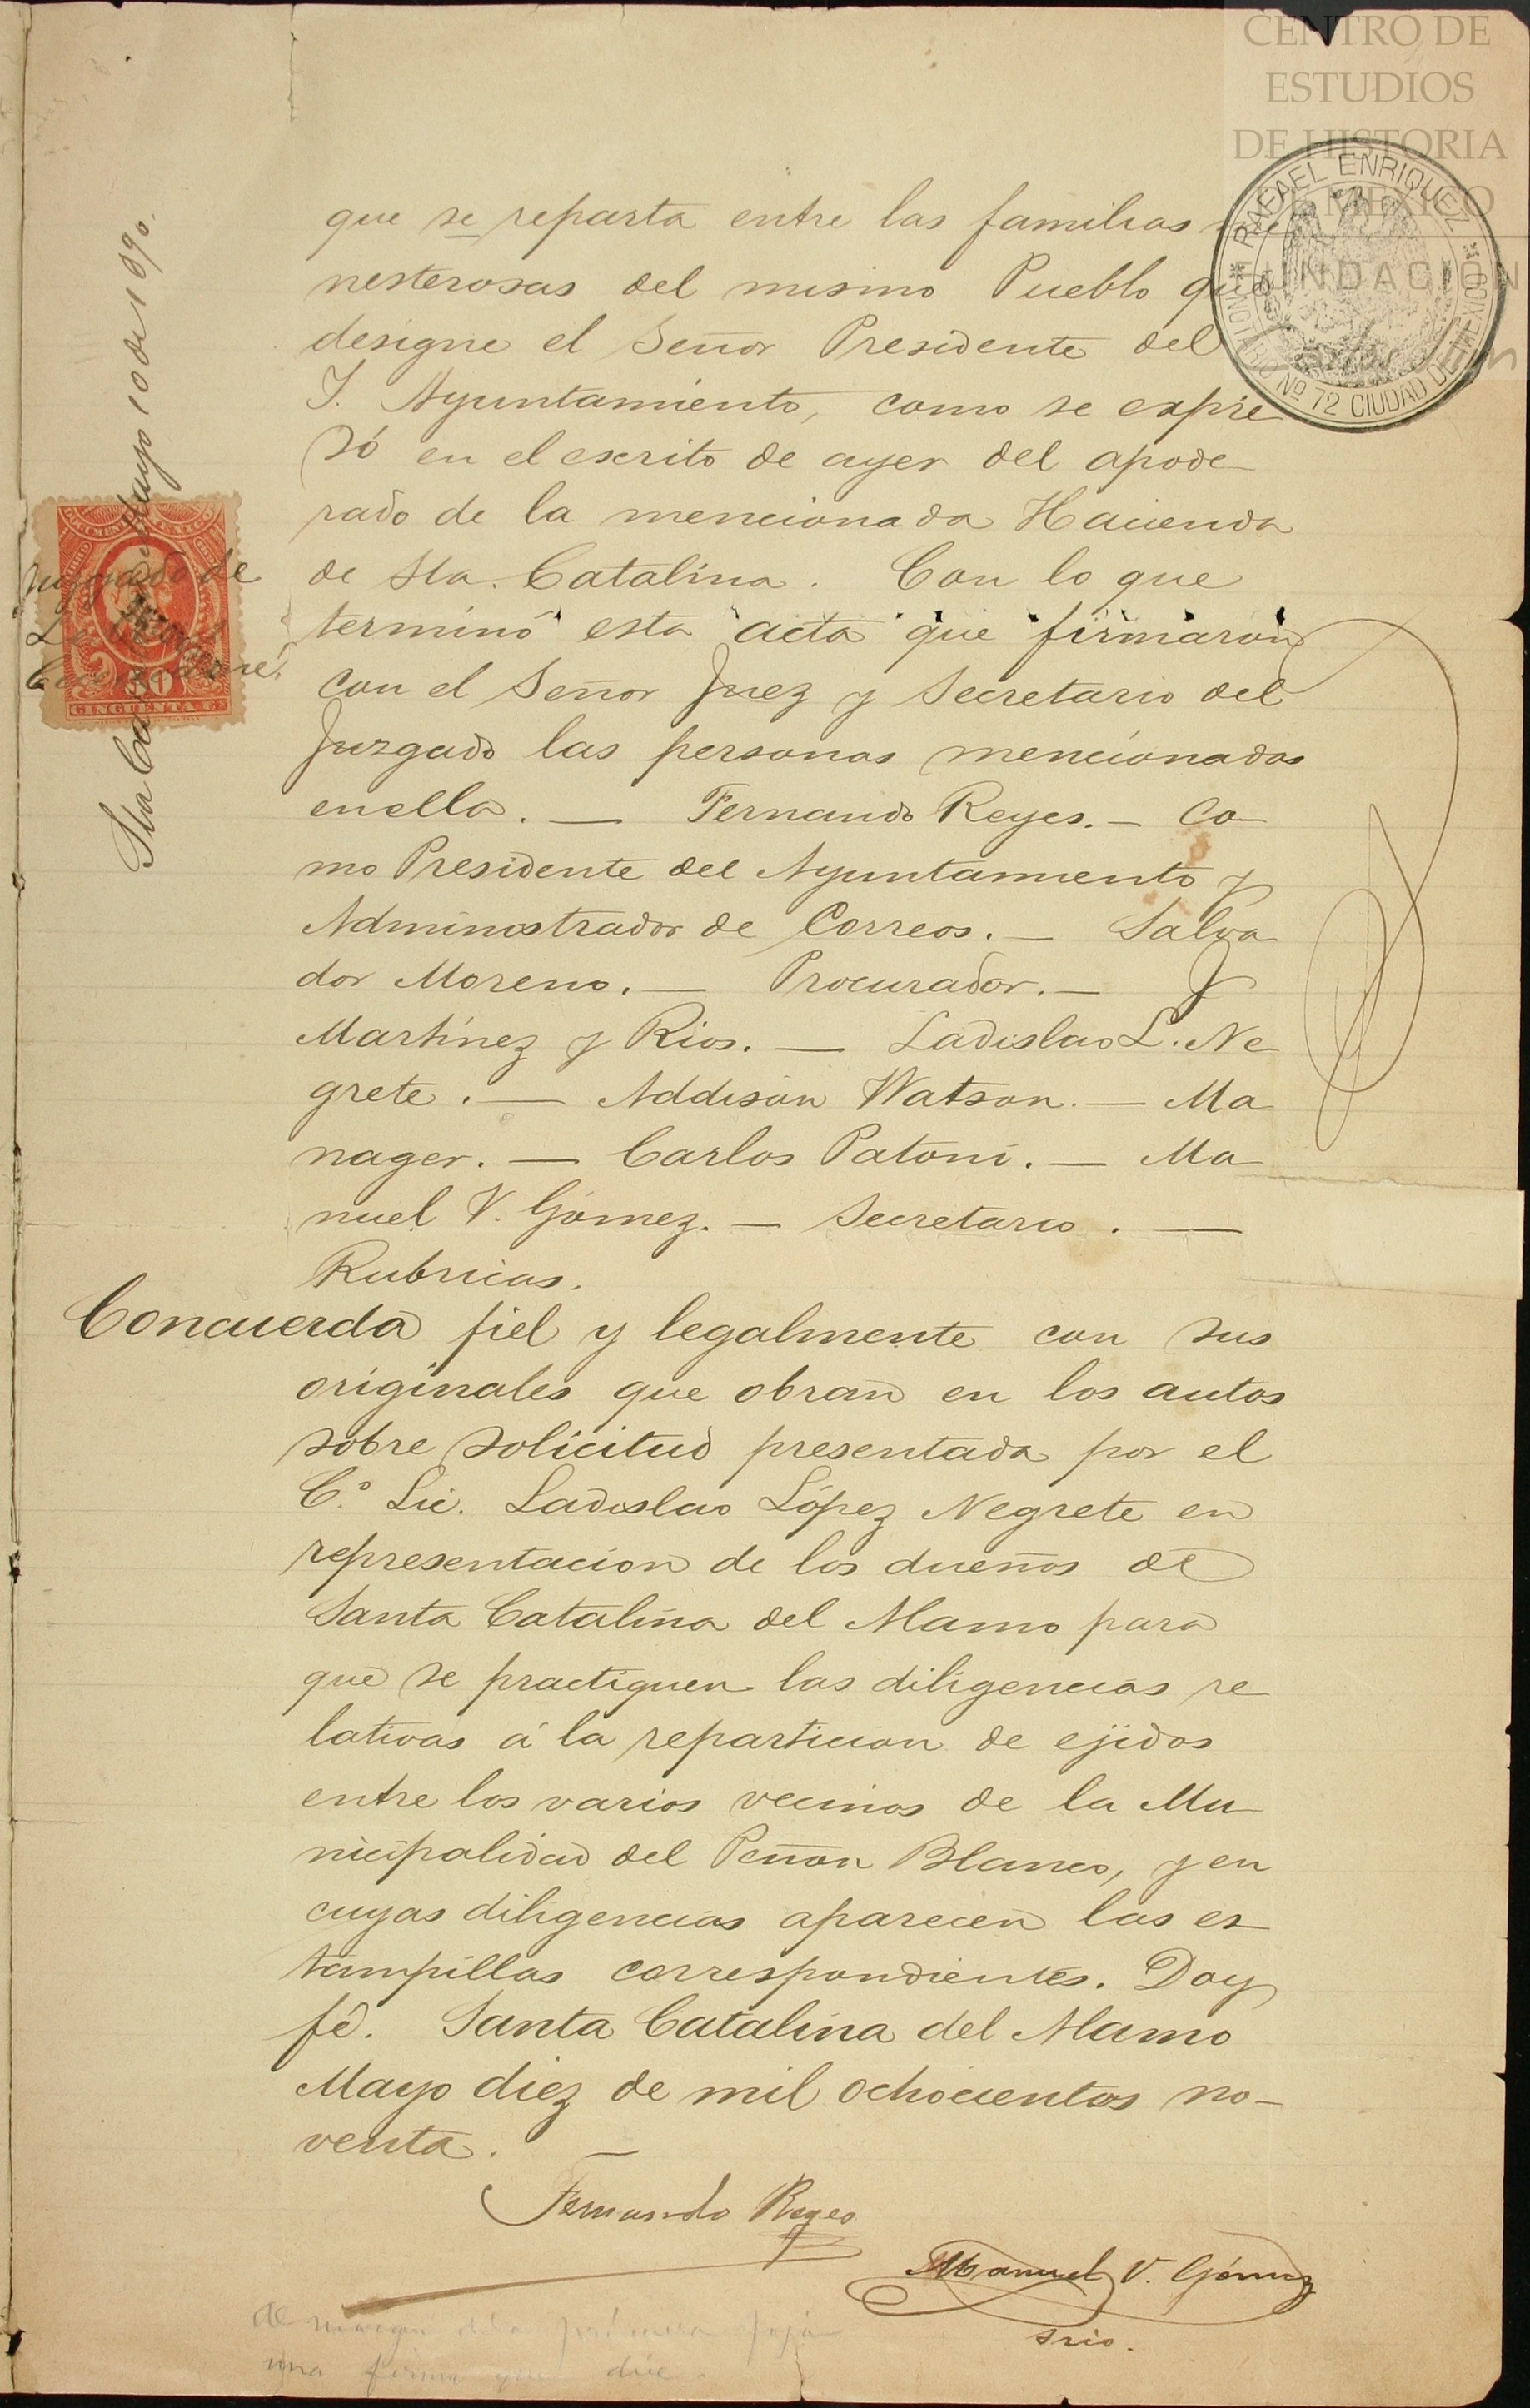 CENTRO DE
ESTUDIOS
DE HISTORIA
DE MÉXICO
FUNDACIÓN
RAFAEL ENRIQUEZ
NOTARIO Nº 72 CIUDAD DE MEXICO
Mayo 10 de 1890.
Juzgado de
CINCUENTA
que se reparta entre las familias me
nesterosas del mismo Pueblo que
designe el Señor Presidente del
I. Ayuntamiento, como se expre
só en el escrito de ayer del apode
rado de la mencionada Hacienda
de Sta. Catalina. Con lo que
terminó esta acta que firmaron
con el Señor Juez y Secretario del
Juzgado las personas mencionadas
en ella. — Fernando Reyes. — Co
mo Presidente del Ayuntamiento y
Administrador de Correos. — Salva
dor Moreno. — Procurador. — J
Martínez y Rios. — Ladislao L. Ne
grete. — Addison Watson. — Ma
nager. — Carlos Patoni. — Ma
nuel V. Gómez. — Secretario. —
Rubricas.
Concuerda fiel y legalmente con sus
originales que obran en los autos
sobre solicitud presentada por el
C.º Lic. Ladislao López Negrete en
representacion de los dueños de
Santa Catalina del Alamo para
que se practiquen las diligencias re
lativas á la reparticion de ejidos
entre los varios vecinos de la Mu
nicipalidad del Peñon Blanco, y en
cuyas diligencias aparecen las es
tampillas correspondientes. Doy
fé. Santa Catalina del Alamo
Mayo diez de mil ochocientos no-
venta. —
Fernando Reyes
Manuel V. Gómez
Srio.
primera foja
una firma que dice